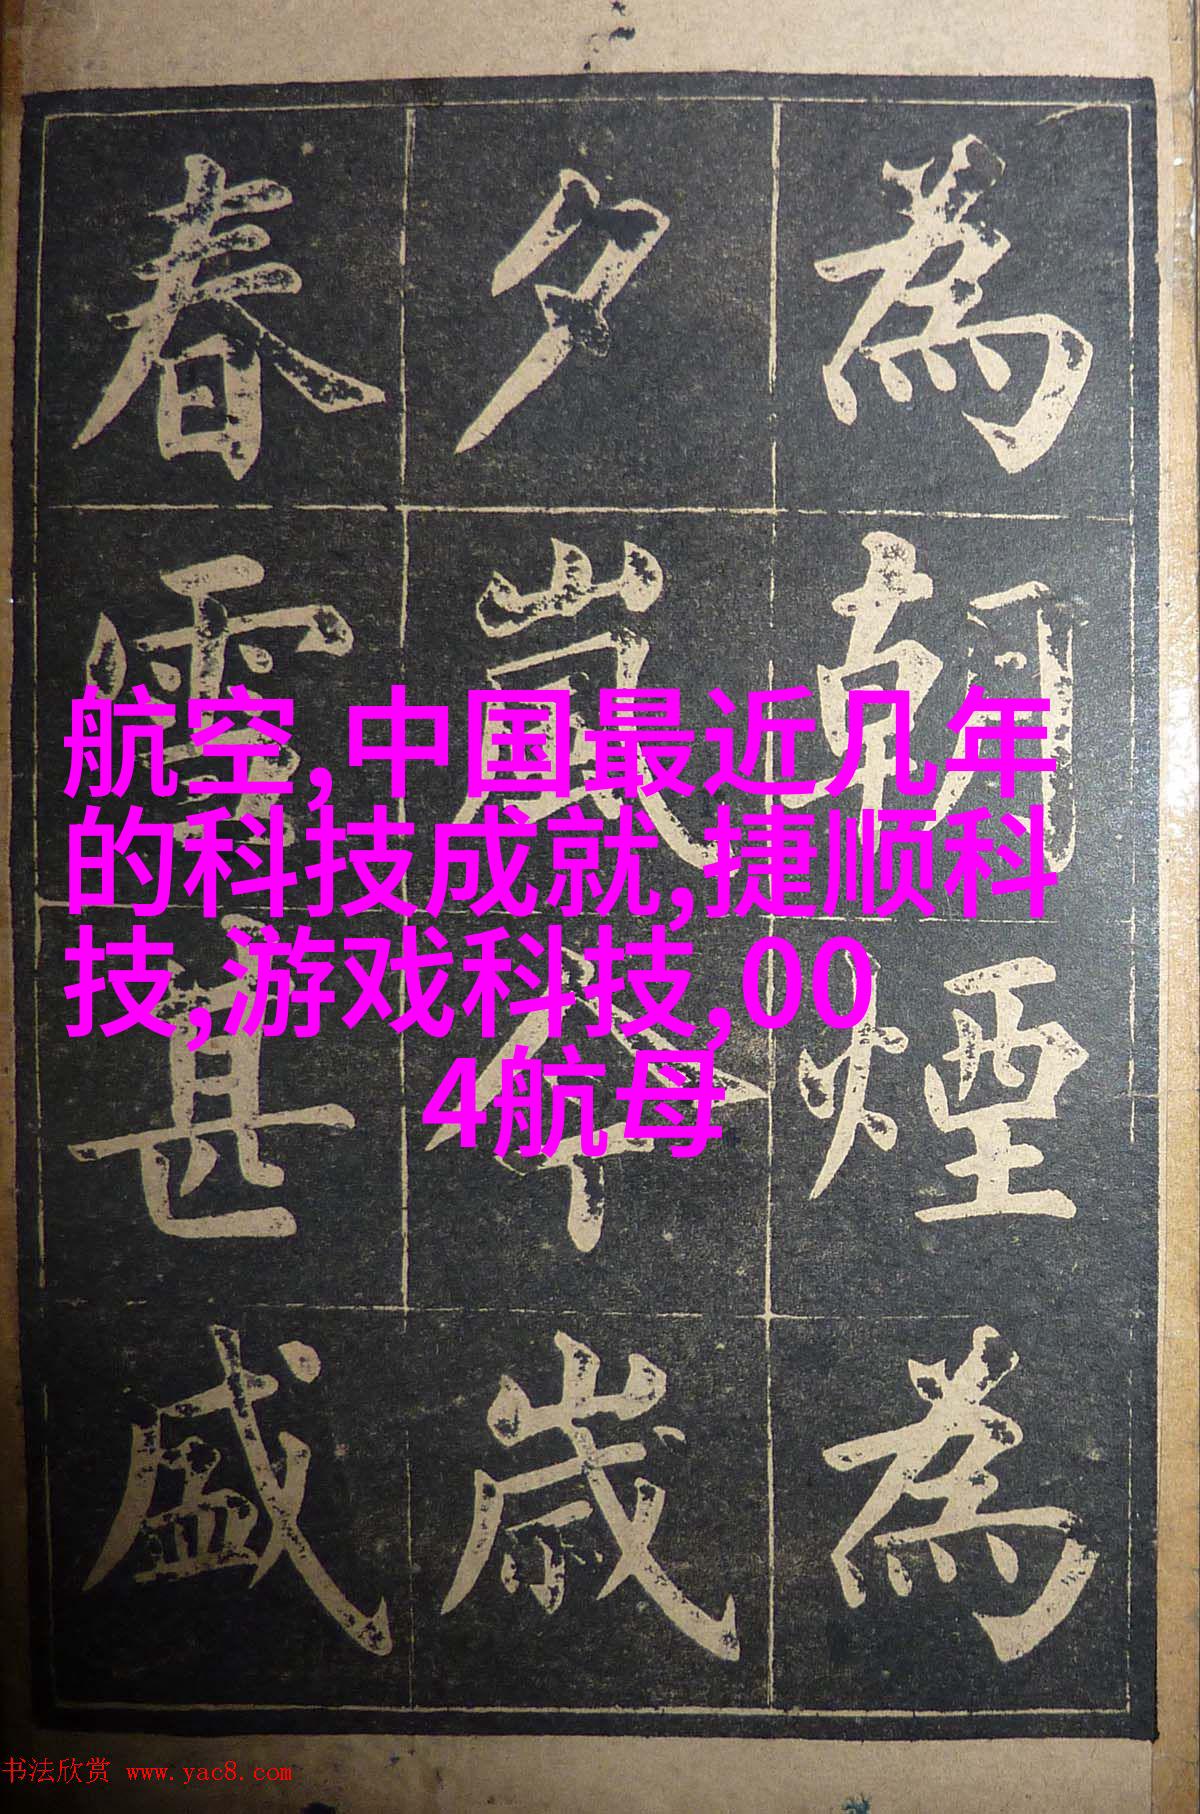 為朝煙為
夕嵐今歲
春雪甚盛
航空,中国最近几年
的科技成就,捷顺科
技,游戏科技,00
4航母
书法欣赏 www.yac8.com